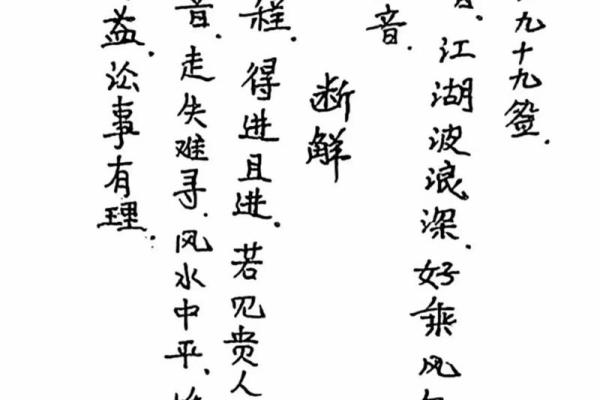 九十九签.
江湖波浪深.好乘风
音.
断解
程.得进且进.若见贵人
音.走失难寻.风水中平、
益.讼事有理.